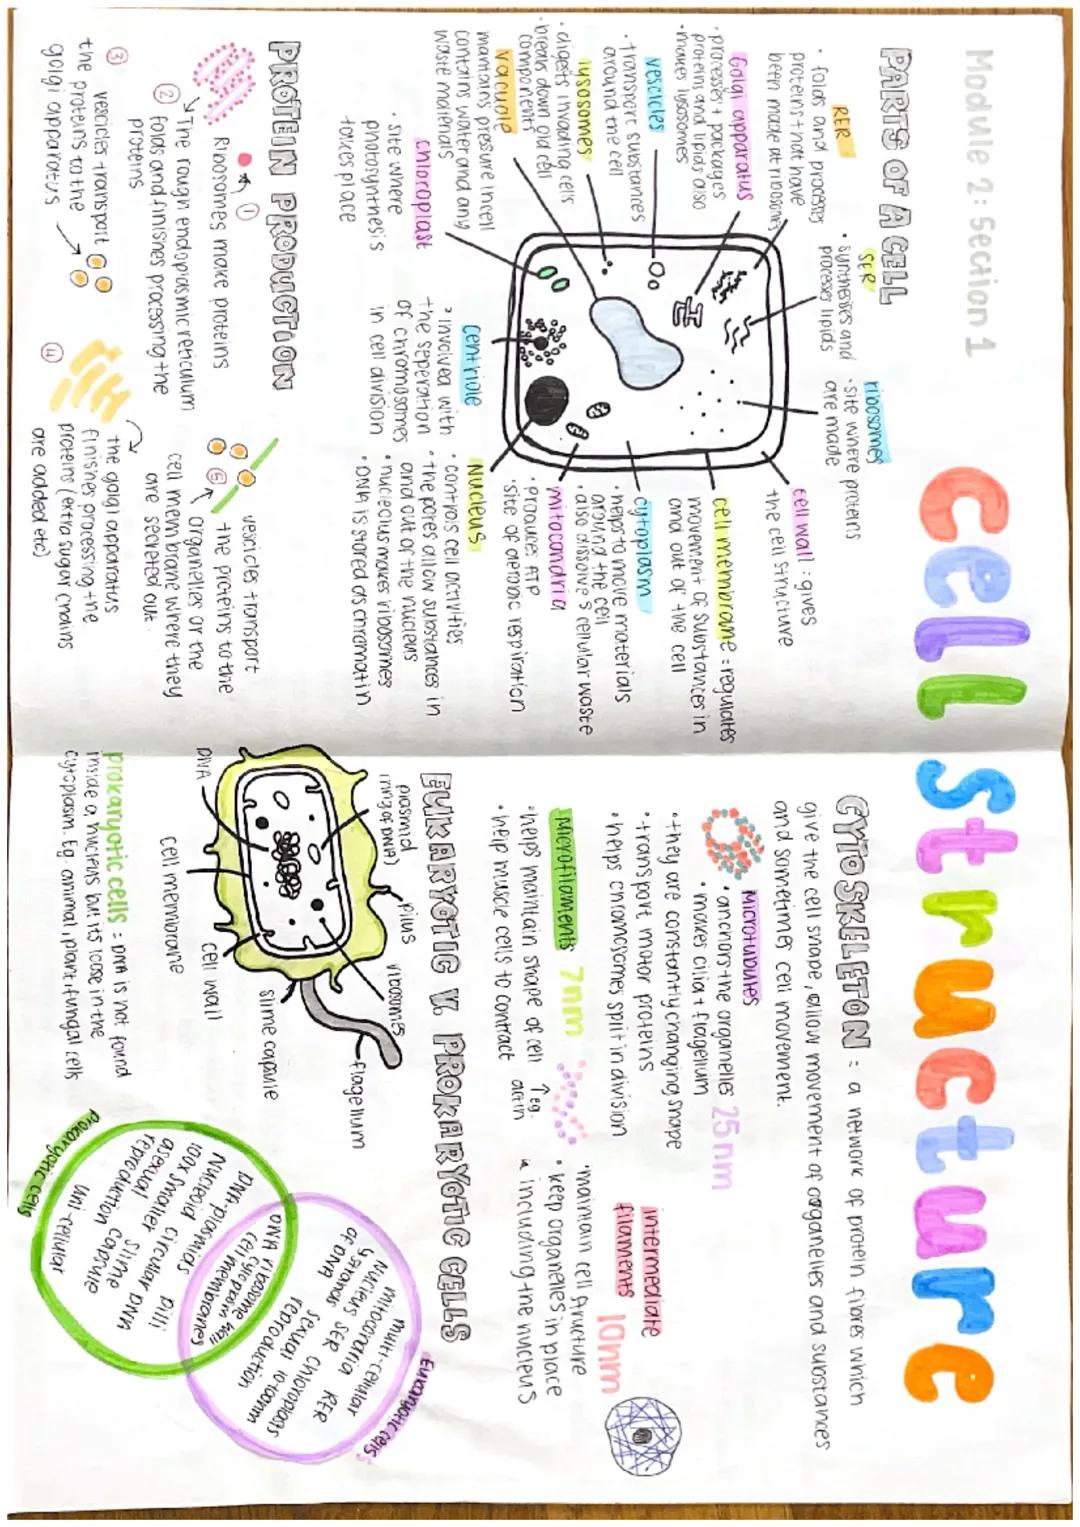 Module 2: Section 1
Cell Structure
PARTS OF A CELL
RER
· folds and processes
proteins that have
been made at ribosomes
SER
· synthesises and
processes lipids
ribosomes
· site where proteins
are made
cell wall: gives
the cell structure
cell membrane: regulates
movement of substances in
and out of the cell
cytoplasm
· helps to move materials
around the cell
· also dissolves cellular waste
mitocondria
· produces ATP
· site of aerobic respiration
Nucleus
· controls cell activities
· the pores allow substances in
and out of the nucleus
· nucleolus makes ribosomes
· DNA is stored as chromatin
centriole
· involved with
the seperation
of chromosomes
in cell division
Golgi apparatus
· processes + packages
proteins and lipids also
· makes lysosomes
vescicles
· transport substances
around the cell
lysosomes
· digests invading cells
· breaks down old cell
components
vacuole
maintains pressure in cell
contains water and any
waste materials
chloroplast
· site where
photosynthesis
takes place
PROTEIN PRODUCTION
①
Ribosomes make proteins
②
The rough endoplasmic reticulum
folds and finishes processing the
proteins
③
vescicles transport
the proteins to the
golgi apparatus
④
the golgi apparatus
finishes processing the
proteins (extra sugar chains
are added etc)
⑤
vescicles transport
the proteins to the
organelles or the
cell membrane where they
are secreted out.
CYTOSKELETON: a network of protein fibres which
give the cell shape, allow movement of organelles and substances
and sometimes cell movement.
Microtubules
25nm
· anchors the organelles
· makes cilia + flagellum
· they are constantly changing shape
· transport motor proteins
· helps chromosomes split in division
Microfilaments 7nm
· helps maintain shape of cell
· help muscle cells to contract
↑ eg.
actin
intermediate
filaments
10nm
· maintain cell structure
· keep organelles in place
including the nucleus
EUKARYOTIC V. PROKARYOTIC CELLS
plasmid
(ring of DNA)
pilus
ribosomes
flagellum
slime capsule
cell wall
cell membrane
DNA
prokaryotic cells: DNA is not found
inside a nucleus but its loose in the
cytoplasm. Eg animal, plant, fungal cells
Prokaryotic cells
DNA-plasmids
Nucleoid
pilli
100x smaller
circular DNA
asexual
reproduction
slime
capsule
uni-cellular
DNA ribosome
cytoplasm
cell wall
membranes
Eukaryotic cells
multi-cellular
mitocondria
RER
Nucleus
SER
chloroplasts
of DNA
sexual
reproduction